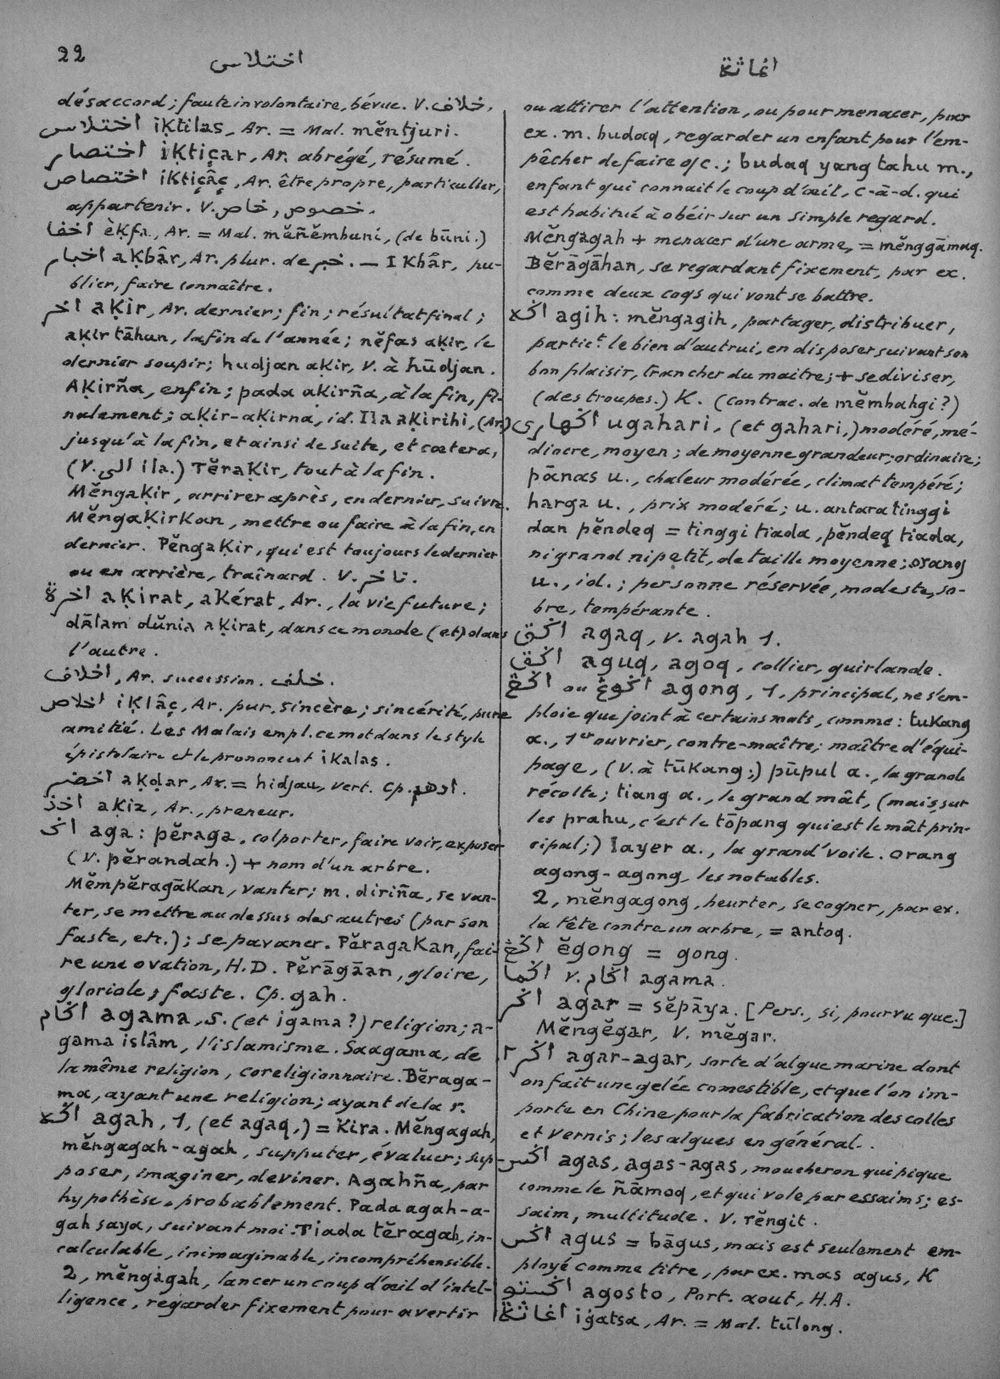 22
اختلاس
اغاثة
désaccord; faute involontaire, bévue. V. خلاف.
اختلاس iḳtilas, Ar. = Mal. mĕntjuri.
اختصار iḳtiçar, Ar. abrégé, résumé.
اختصاص iḳtiçâç, Ar. être propre, particulier,
appartenir. V. خصوص, خاص.
اخفا èḳfa, Ar. = Mal. mĕñĕmbuni, (de būni.)
اخبار aḳbâr, Ar. plur. de خبر. — Iḳbâr, pu-
blier, faire connaître.
اخر aḳir, Ar. dernier; fin; résultat final;
aḳir tāhun, la fin de l'année; nĕfas aḳir, le
dernier soupir; hudjan aḳir, V. à hūdjan.
Aḳirña, enfin; pada aḳirña, à la fin, fi-
nalement; aḳir-aḳirna, id. Ila aḳirihi, (Ar.)
jusqu'à la fin, et ainsi de suite, et cœtera,
(V. الى ila.) Tĕraḳir, tout à la fin.
Mĕngaḳir, arriver après, en dernier, suivre.
Mĕngaḳirkan, mettre ou faire à la fin, en
dernier. Pĕngaḳir, qui est toujours le dernier
ou en arrière, traînard. V. تاخر.
اخرة aḳirat, aḳérat, Ar., la vie future;
dālam dŭnia aḳirat, dans ce monde (et) dans
l'autre.
اخلاف, Ar. succession. خلف.
اخلاص iḳlâç, Ar. pur, sincère; sincérité, pure
amitié. Les Malais empl. ce mot dans le style
épistolaire et le prononcent ikalas.
اخضر aḳḍar, Ar. = hidjau, vert. Cp. ادهم.
اخذ aḳiz, Ar., preneur.
اݢ aga: pĕraga, colporter, faire voir, exposer
(V. pĕrandah.) + nom d'un arbre.
Mĕmpĕragākan, vanter; m. diriña, se van-
ter, se mettre au dessus des autres (par son
faste, etc.); se pavaner. Pĕragakan, fai-
re une ovation, H.D. Pĕrāgāan, gloire,
gloriole, faste. Cp. gah.
اݢام agama, S. (et igama?) religion; a-
gama islâm, l'islamisme. Saagama, de
la même religion, coreligionnaire. Bĕraga-
ma, ayant une religion; ayant de la r.
اݢه agah, 1, (et agaq,) = kira. Mĕngagah,
mĕngagah-agah, supputer, évaluer; sup-
poser, imaginer, deviner. Agahña, par
hypothèse, probablement. Pada agah-a-
gah saya, suivant moi. Tiada tĕragah, in-
calculable, inimaginable, incompréhensible.
2, mĕngagah, lancer un coup d'œil d'intel-
ligence, regarder fixement pour avertir
ou attirer l'attention, ou pour menacer, par
ex. m. budaq, regarder un enfant pour l'em-
pêcher de faire qc.; budaq yang tahu m.,
enfant qui connait le coup d'œil, c-à-d. qui
est habitué à obéir sur un simple regard.
Mĕngagah + menacer d'une arme, = mĕnggāmaq.
Bĕrāgāhan, se regardant fixement, par ex.
comme deux coqs qui vont se battre.
اݢه agih: mĕngagih, partager, distribuer,
partic.t le bien d'autrui, en disposer suivant son
bon plaisir, trancher du maître; + se diviser,
(des troupes.) K. (contrac. de mĕmbahgi?)
اݢهاري ugahari, (et gahari,) modéré, mé-
diocre, moyen; de moyenne grandeur; ordinaire;
pānas u., chaleur modérée, climat tempéré;
harga u., prix modéré; u. antara tinggi
dan pĕndeq = tinggi tiada, pĕndeq tiada,
ni grand ni petit, de taille moyenne; orang
u., id.; personne réservée, modeste, so-
bre, tempérante.
اݢق agaq, v. agah 1.
اݢق aguq, agoq, collier, guirlande.
اݢڠ ou اݢوڠ agong, 1, principal, ne s'em-
ploie que joint à certains mots, comme: tukang
a., 1er ouvrier, contre-maître; maître d'équi-
page, (V. à tūkang;) pūpul a., la grande
récolte; tiang a., le grand mât, (mais sur
les prahu, c'est le tōpang qui est le mât prin-
cipal;) layer a., la grand'voile. Orang
agong-agong, les notables.
2, mĕngagong, heurter, se cogner, par ex.
la tête contre un arbre, = antoq.
اݢڠ ĕgong = gong.
اݢما v. اݢام agama.
اݢر agar = sĕpāya. [Pers., si, pourvu que.]
Mĕngĕgar, V. mĕgar.
اݢر٢ agar-agar, sorte d'algue marine dont
on fait une gelée comestible, et que l'on im-
porte en Chine pour la fabrication des colles
et vernis; les algues en général.
اݢس agas, agas-agas, moucheron qui pique
comme le ñāmoq, et qui vole par essaims; es-
saim, multitude. V. rĕngit.
اݢس agus = bāgus, mais est seulement em-
ployé comme titre, par ex. mas agus, K
اݢستو agosto, Port. aout, H.A.
اغاثة igatsa, Ar. = Mal. tūlong.